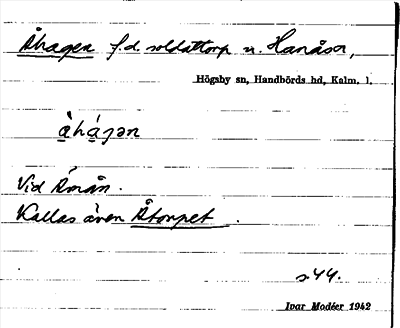 Åhagen f.d. soldattorp u. Hanåsa,
Högsby sn, Handbörds hd, Kalm. l.
a̲̍há̲gən
Vid Åmån.
Kallas även Åtorpet.
s44.
Ivar Modéer 1942